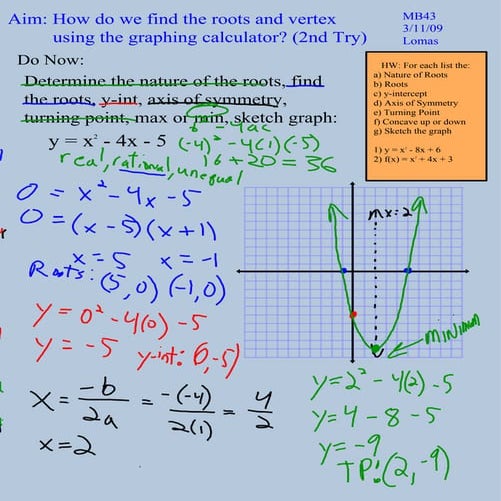 Aim: How do we find the roots and vertex
using the graphing calculator? (2nd Try)
MB43
3/11/09
Lomas
Do Now:
Determine the nature of the roots, find
the roots, y-int, axis of symmetry,
turning point, max or min, sketch graph:
b² - 4ac
y = x² - 4x - 5 (-4)² - 4(1)(-5)
16 + 20 = 36
real, rational, unequal
HW: For each list the:
a) Nature of Roots
b) Roots
c) y-intercept
d) Axis of Symmetry
e) Turning Point
f) Concave up or down
g) Sketch the graph
1) y = x² - 8x + 6
2) f(x) = x² + 4x + 3
0 = x² - 4x - 5
0 = (x - 5)(x + 1)
x = 5 x = -1
Roots: (5, 0) (-1, 0)
y = 0² - 4(0) - 5
y = -5 y-int: (0, -5)
x = -b/2a = -(-4)/2(1) = 4/2
x = 2
x = 2
minimum
y = 2² - 4(2) - 5
y = 4 - 8 - 5
y = -9
T.P.: (2, -9)